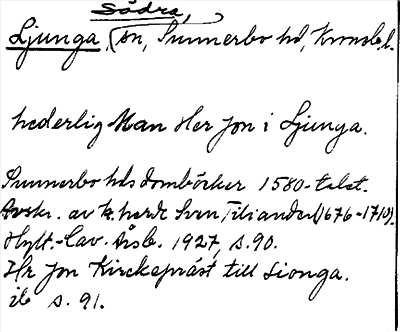 Södra,
Ljunga, sn, Sunnerbo hd, Kronob.l.
hederlig Man Her Jon i Ljunga.
Sunnerbo hds dombörker 1580-talet.
Avskr. av k. herde Sven Tiliander (1676-1710).
Hylt.-Cav. Årsb. 1927, s. 90.
Hr Jon Kirckepräst till Lionga.
ib s. 91.